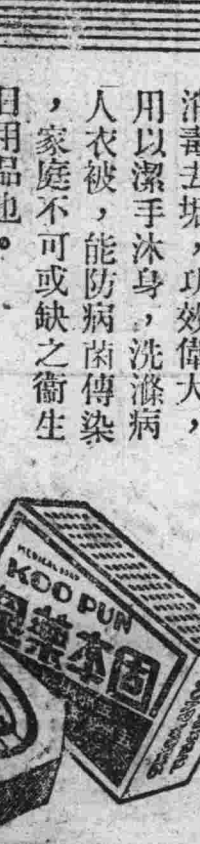 消毒去垢，功效偉大，
用以潔手沐身，洗滌病
人衣被，能防病菌傳染
，家庭不可或缺之衞生
日用品也。
MEDICAL SOAP
KOO PUN
固本藥皂